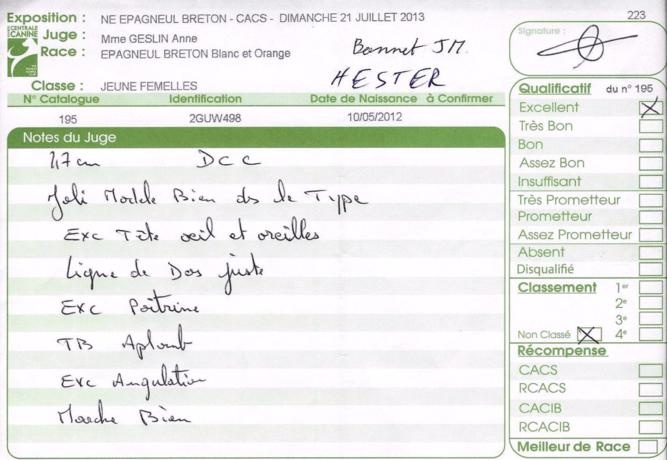 Exposition : NE EPAGNEUL BRETON - CACS - DIMANCHE 21 JUILLET 2013
223
CENTRALE CANINE
Juge : Mme GESLIN Anne
Bonnet JM.
Signature :
Race : EPAGNEUL BRETON Blanc et Orange
HESTER
Classe : JEUNE FEMELLES
N° Catalogue Identification Date de Naissance à Confirmer
195 2GUW498 10/05/2012
Notes du Juge
DCC
Joli Modele Bien ds le Type
Exc Tête oeil et oreilles
Ligne de Dos juste
Exc Poitrine
TB Aplomb
Exc Angulation
Marche Bien
Qualificatif du n° 195
Excellent X
Très Bon
Bon
Assez Bon
Insuffisant
Très Prometteur
Prometteur
Assez Prometteur
Absent
Disqualifié
Classement 1er
2e
3e
Non Classé X 4e
Récompense
CACS
RCACS
CACIB
RCACIB
Meilleur de Race